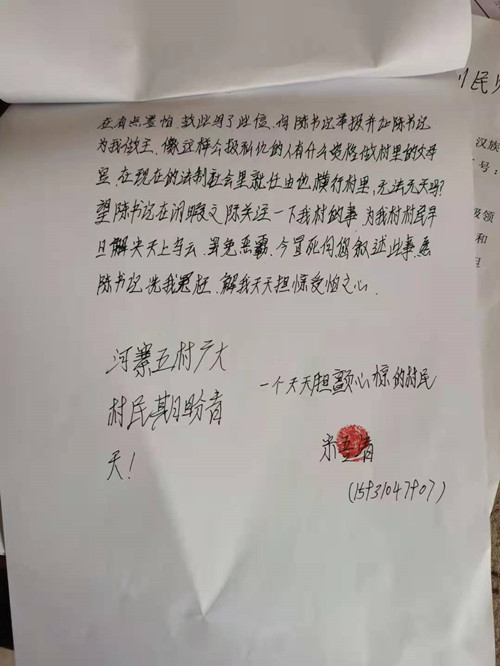 在有点害怕 故此写了此信、向陈书记举报并让陈书记
为我做主、像这样公报私仇的人有什么资格做村里的父母
官、在现在的法制社会里就任由他横行村里、无法无天吗?
望陈书记在闲暇之际关注一下我村的事 为我村村民早
日解决天上乌云、罢免恶霸、今冒死向您叙述此事、
陈书记、洗我冤枉、解我天天担惊受怕之心、
河寨五村广大
村民期盼青
天!
一个天天胆颤心惊的村民
(15931047907)
民
汉族
号:
级领
和